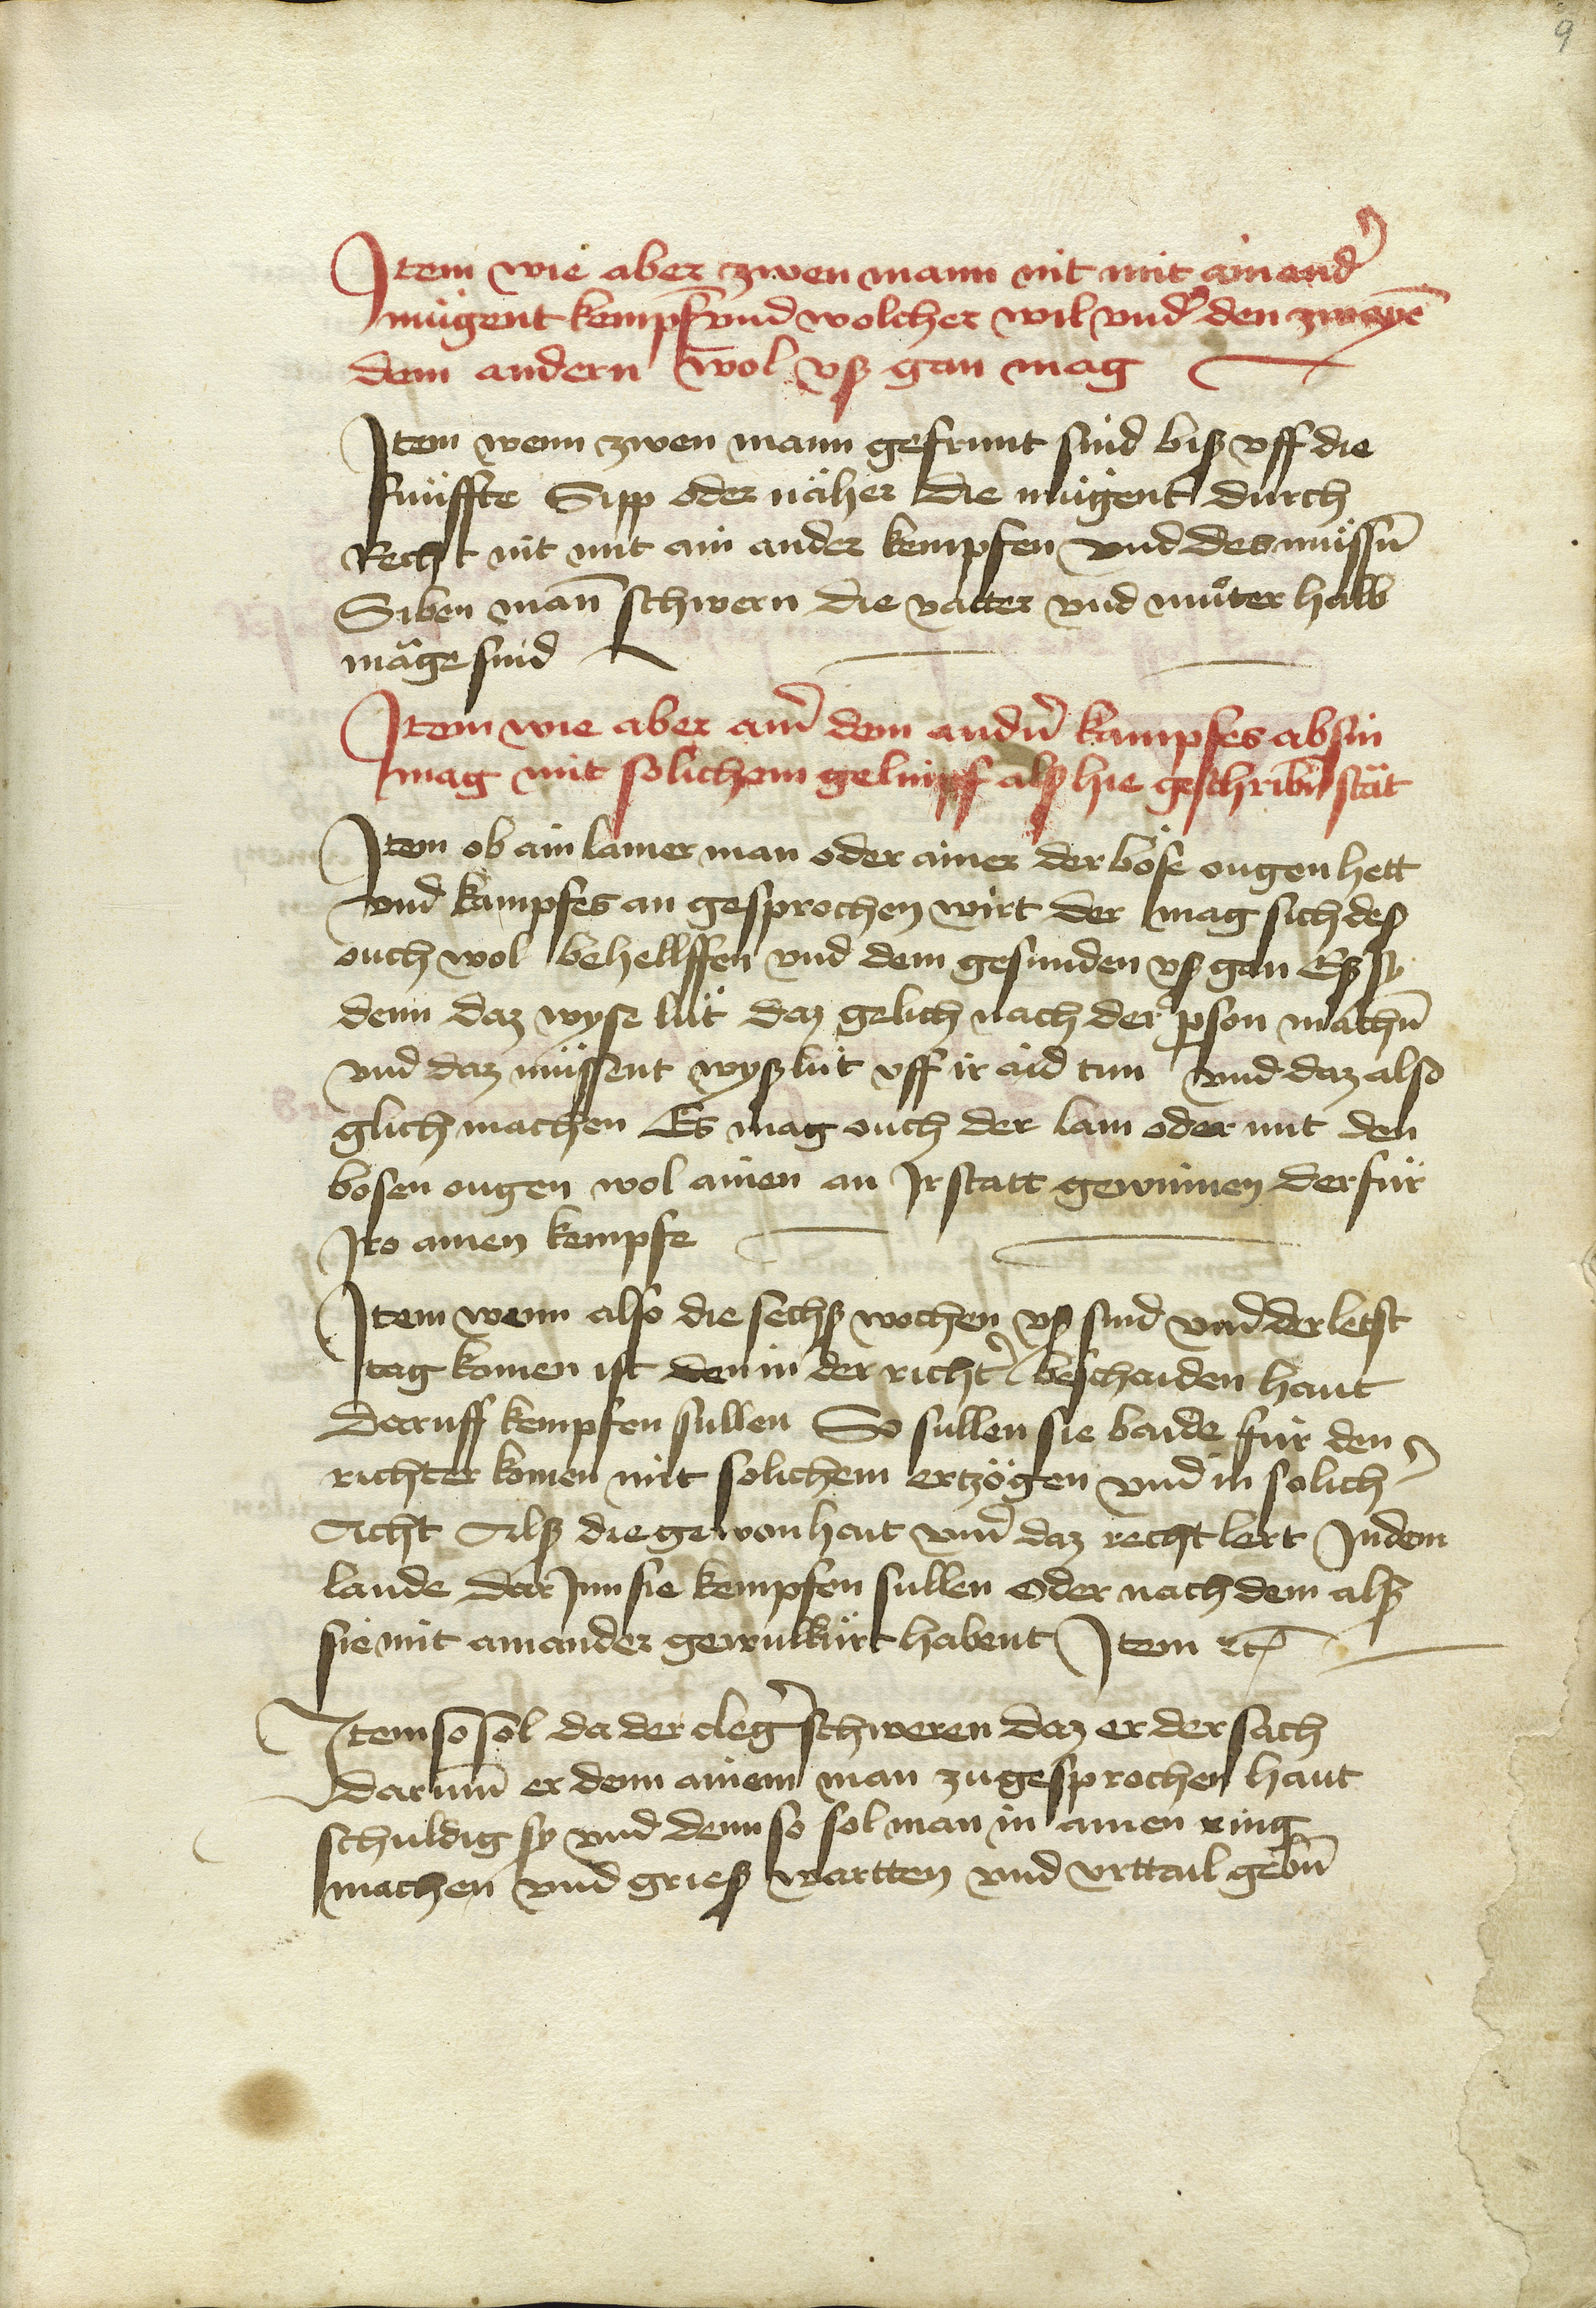 9
Item wie aber zwen mann nit mit ainand̕
mügent kempfē vnd wolcher wil vnd̕ den zwayē
dem andern wol vß gan mag
Item wenn zwen mann gefrunt sind biß vff die
fünffte Sipp oder näher die mügent durch
Recht nit mit ain ander kempfen vnd des müssn̄
Siben man̄ schwern die vatter vnd muͦter halb
mäge sind
Item wie aber ain̕ dem andn̕ kampfes absin
mag mit solichem gelimpf alß hie geschribn̄ stät
Item ob ain lamer man oder ainer der böse ougen hett
vnd kampfes an gesprochen wirt der mag sich des
ouch wol behellffen vnd dem gesunden vß gan Eß sy
denn daz wyse lüt daz gelich nach der pson machn̄
vnd daz müssent wyß lüt vff ir aid tun vnd daz also
glich machen Es mag ouch der lam oder mit den
bosen ougen wol ainen an Ir statt gewinnen der für
Iro ainen kempfe
Item wenn also die sechß wochen vß sind vnd der letst
tag komen ist den in der richt̕ beschaiden haut
daruff kempfen sullen So sullen sie baide für den
richter komen mit solichem ertzögen vnd in solich̕
Acht Alß die gewonhait vnd̕ daz recht lert In dem
lande dar Inn sie kempfen sullen oder nach dem alß
sie mit ainander gewilkürt habent Item ꝛc
Item so sol da der cleg̕ schweren daz er der sach
darum̄ er denn ainem man zugesprochen haut
schuldig sy vnd denn so sol man in ainen ring
machen vnd grieß wartten vnd vrttail gebn̄